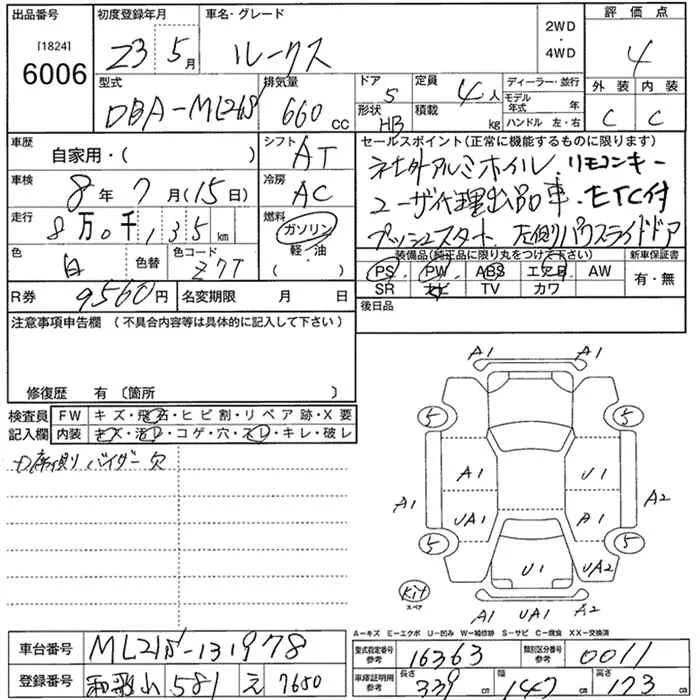 出品番号 初度登録年月 車名・グレード 2WD・4WD 評価点
[1824]
6006 23 5月 ルークス 4
型式 排気量 ドア 5 定員 4人 ディーラー・並行 外装 内装
DBA-ML21S 660cc 形状 HB 積載 kg モデル年式 年 C C
ハンドル 左・右
車歴 自家用・( ) シフト AT セールスポイント(正常に機能するものに限ります)
車検 8年7月(15日) 冷房 AC 社外アルミホイル リモコンキー
走行 8万0千135km 燃料 ガソリン・軽・油 ユーザ代理出品車.ETC付
プッシュスタート 左側パワスライドドア
色 白 色替 色コード Z7T 装備品(純正品に限り丸をつけて下さい) 新車保証書
PS PW ABS エアB AW 有・無
R券 9560円 名変期限 月 日 SR ナビ TV カワ
注意事項申告欄(不具合内容等は具体的に記入して下さい) 後日品
修復歴 有〔箇所 〕
検査員 FW キズ・飛石・ヒビ割・リペア跡・X要
記入欄 内装 キズ・汚レ・コゲ・穴・スレ・キレ・破レ
席側バイザー欠
A1 A1
5 5
A1 A1 U1 A2
UA1 A1
5 5
U1 UA2
Kit
スペア
A1 UA1 A2
A-キズ E-エクボ U-凹み W-補修跡 S-サビ C-腐食 XX-交換済
車台番号 ML21S-131978 型式指定番号 参考 16363 類別区分番号 参考 0011
登録番号 和歌山 581 え 7650 車庫証明用 参考 長さ 339cm 幅 147cm 高さ 173cm